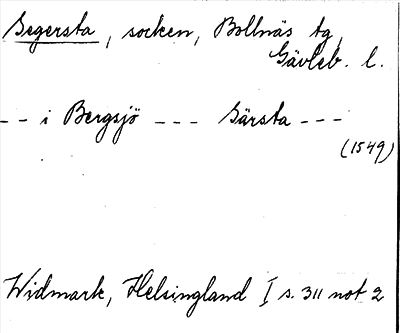 Segersta, socken, Bollnäs tg,
Gävleb. l.
-- i Bergsjö --- Särsta ---
(1549)
Widmark, Helsingland I s. 311 not 2